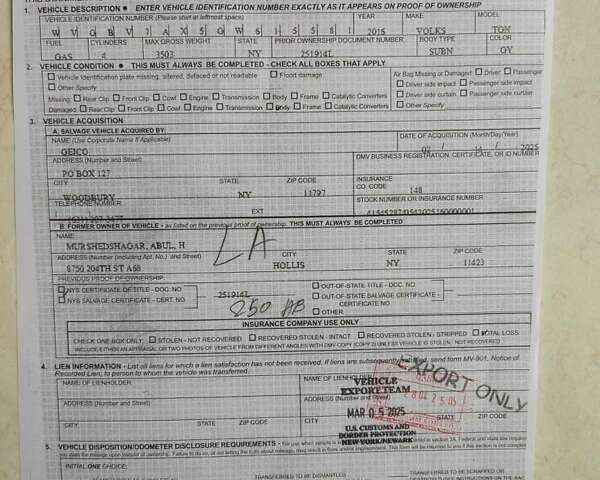 1. VEHICLE DESCRIPTION ● ENTER VEHICLE IDENTIFICATION NUMBER EXACTLY AS IT APPEARS ON PROOF OF OWNERSHIP
VEHICLE IDENTIFICATION NUMBER (Please start at leftmost space) YEAR MAKE MODEL
2016 VOLKS TON
FUEL CYLINDERS MAX GROSS WEIGHT STATE PRIOR OWNERSHIP DOCUMENT NUMBER BODY TYPE COLOR
GAS 4 3503 NY 251914L SUBN GY
2. VEHICLE CONDITION ● THIS MUST ALWAYS BE COMPLETED - CHECK ALL BOXES THAT APPLY
Vehicle identification plate missing, altered, defaced or not readable Flood damage Air Bag Missing or Damaged: Driver Passenger
Other Specify Driver side impact Passenger side impact
Missing: Rear Clip Front Clip Cowl Engine Transmission Body Frame Catalytic Converters Driver side curtain Passenger side curtain
Damaged: Rear Clip Front Clip Cowl Engine Transmission Body Frame Catalytic Converters Other Specify
3. VEHICLE ACQUISITION
A. SALVAGE VEHICLE ACQUIRED BY:
NAME (Use Corporate Name if Applicable) DATE OF ACQUISITION (Month/Day/Year)
GEICO 02 / 14 / 2025
ADDRESS (Number and Street) DMV BUSINESS REGISTRATION, CERTIFICATE, OR ID NUMBER
PO BOX 127
CITY STATE ZIP CODE INSURANCE CO. CODE
WOODBURY NY 11797 148
TELEPHONE NUMBER EXT STOCK NUMBER OR INSURANCE NUMBER
B. FORMER OWNER OF VEHICLE - as listed on the previous proof of ownership. THIS MUST ALWAYS BE COMPLETED
NAME
MURSHEDSHAGAR, ABUL, H
LA
ADDRESS (Number including Apt. No.) and Street) CITY STATE ZIP CODE
8750 204TH ST A68 HOLLIS NY 11423
PREVIOUS PROOF OF OWNERSHIP:
NYS CERTIFICATE OF TITLE - DOC. NO. 251914L OUT-OF-STATE TITLE - DOC. NO.
NYS SALVAGE CERTIFICATE - CERT. NO. OUT-OF-STATE SALVAGE CERTIFICATE - CERTIFICATE NO.
250 AB OTHER
INSURANCE COMPANY USE ONLY
CHECK ONE BOX ONLY: STOLEN - NOT RECOVERED RECOVERED STOLEN - INTACT RECOVERED STOLEN - STRIPPED TOTAL LOSS
INCLUDE EITHER AN APPRAISAL OR TWO PHOTOS OF VEHICLE FROM DIFFERENT ANGLES WITH DMV COPY (COPY 2) UNLESS VEHICLE IS STOLEN - NOT RECOVERED
4. LIEN INFORMATION - List all liens for which a lien satisfaction has not been received. If liens are subsequently satisfied, send form MV-901, Notice of
Recorded Lien, to person to whom the vehicle was transferred.
NAME OF LIENHOLDER NAME OF LIENHOLDER
EXPORT ONLY
VEHICLE
EXPORT TEAM
ADDRESS (Number and Street) ADDRESS (Number and Street)
MAR 05 2025
CITY STATE ZIP CODE STATE ZIP CODE
U.S. CUSTOMS AND
BORDER PROTECTION
NEW YORK/NEWARK
5. VEHICLE DISPOSITION/ODOMETER DISCLOSURE REQUIREMENTS
INITIAL ONE CHOICE:
TRANSFERRED TO BE DISMANTLED TRANSFERRED TO BE SCRAPPED OR